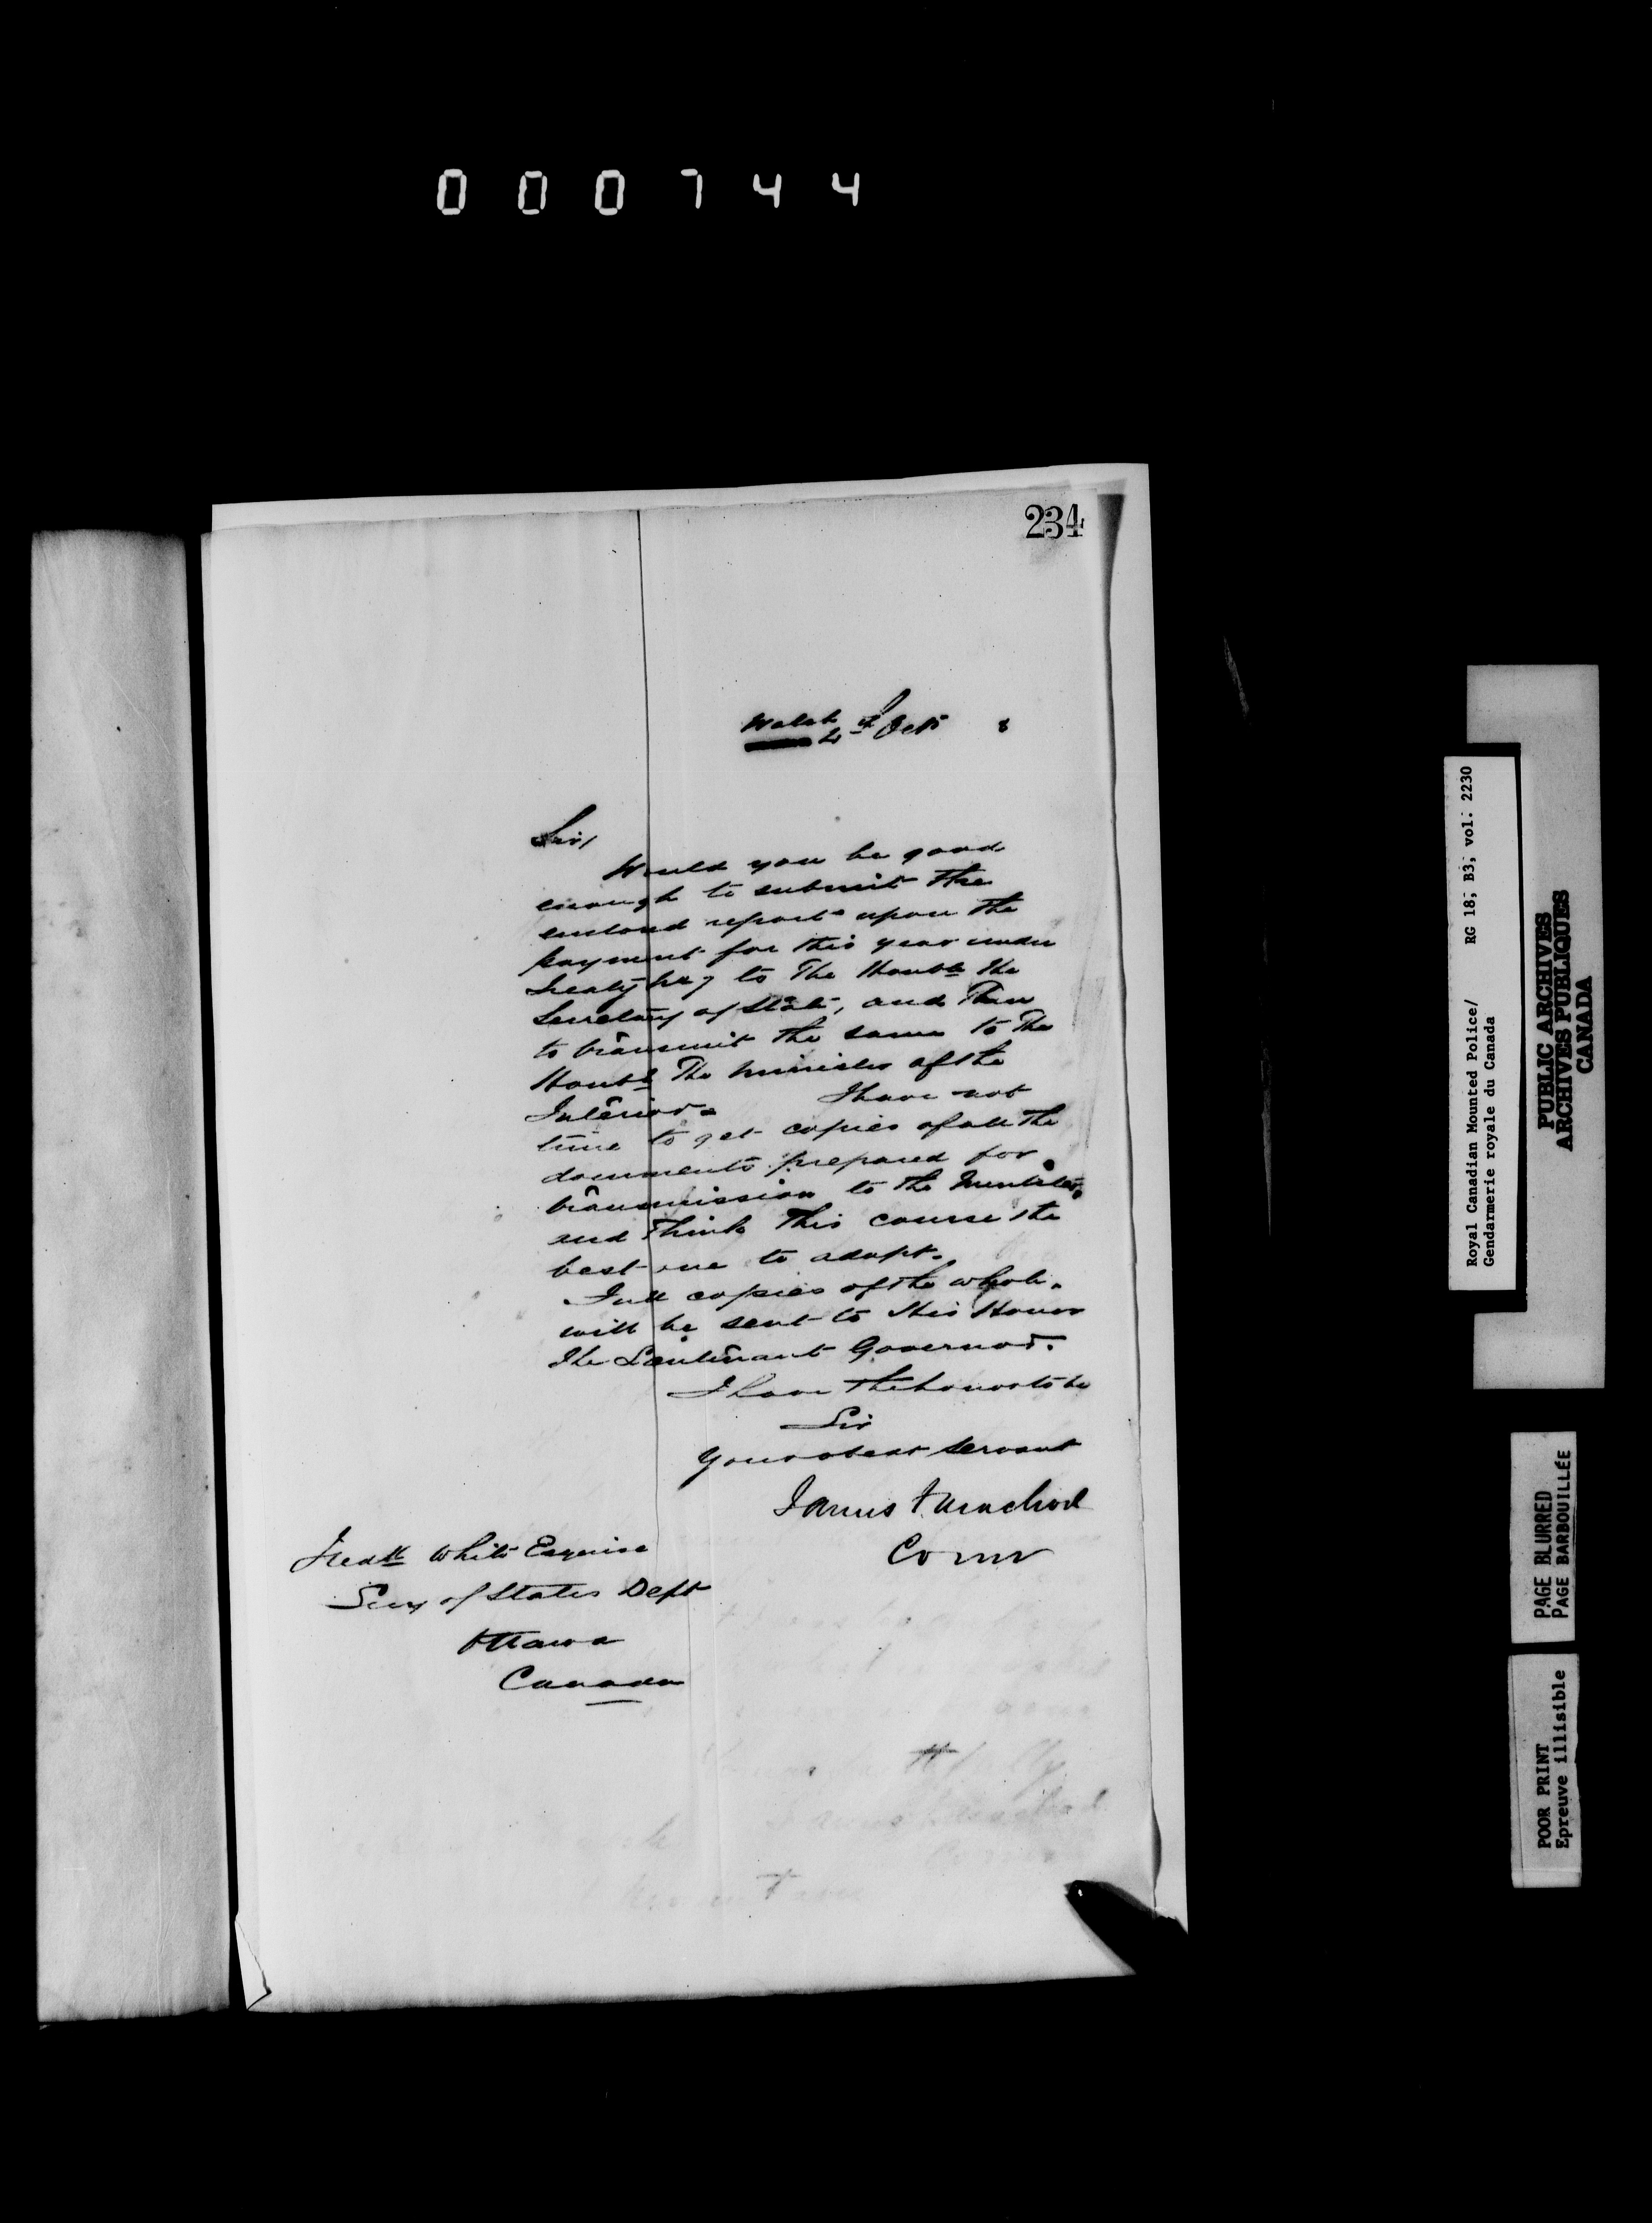 000744
234
Walsh
4th Octr 8
Sir/
Would you be good
enough to submit the
enclosed reports upon the
payment for this year under
Treaty No 7 to The Honble The
Secretary of State, and then
to transmit the same to The
Honble The Minister of the
Interior. I have not
time to get copies of all the
documents prepared for
transmission to the Minister,
and think this course the
best one to adopt.
Full copies of the whole
will be sent to His Honor
The Lieutenant Governor.
I have the honor to be
Sir
Your obedt servant
James F. Macleod
Commr
Fredk White Esquire
Secy of States Dept
Ottawa
Canada
Royal Canadian Mounted Police/ RG 18, B3, vol. 2230
Gendarmerie royale du Canada
PUBLIC ARCHIVES
ARCHIVES PUBLIQUES
CANADA
PAGE BLURRED
PAGE BARBOUILLÉE
POOR PRINT
Epreuve illisible